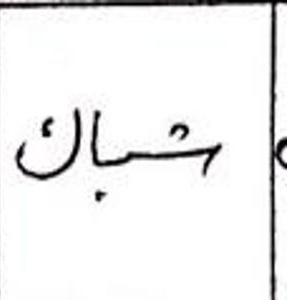 شباك